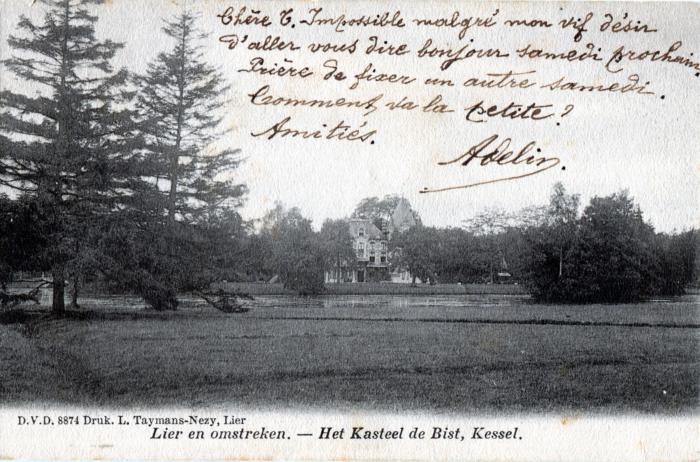 Chère T. Impossible malgré mon vif désir
d'aller vous dire bonjour samedi prochain
Prière de fixer un autre samedi.
Comment, va la petite?
Amitiés.
Adelin.
D.V.D. 8874 Druk. L. Taymans-Nezy, Lier
Lier en omstreken. — Het Kasteel de Bist, Kessel.